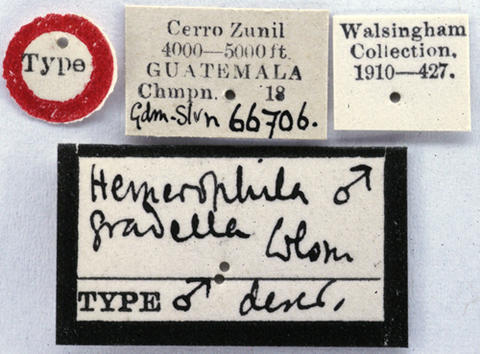 Type
Cerro Zunil
4000—5000 ft.
GUATEMALA
Chmpn. 18
Gdm-Slvn 66706.
Walsingham
Collection.
1910—427.
Hemerophila ♂
gradella Wlsm
TYPE ♂ descr.